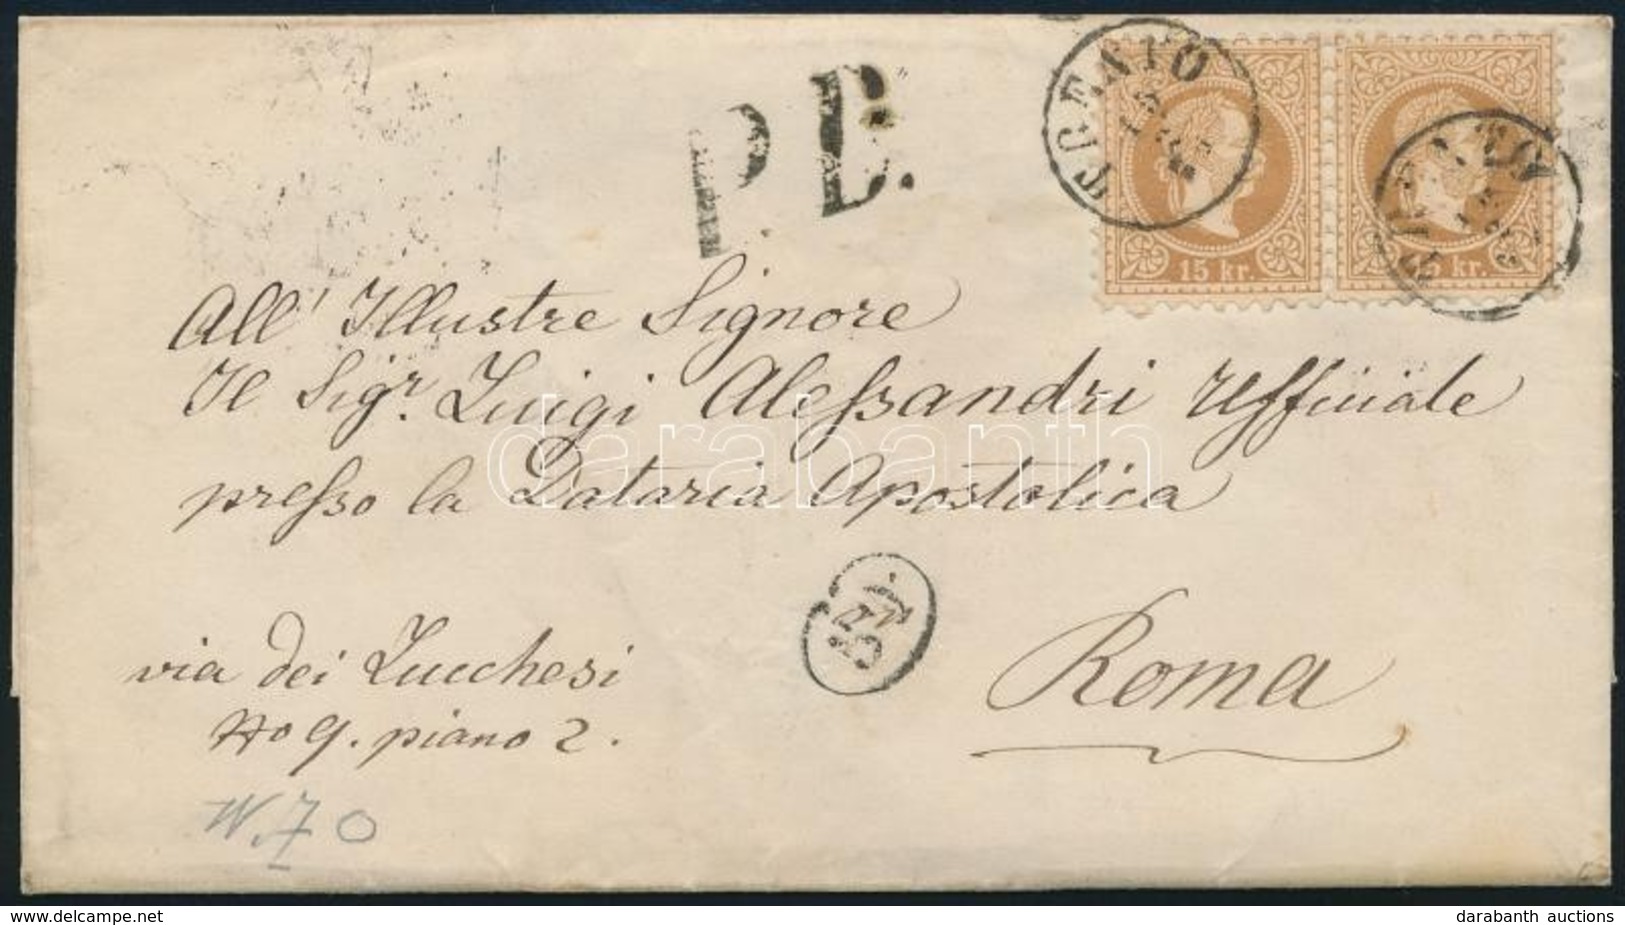 P.D.
TRENTO
15 kr.
kr.
All' Illustre Signore
Il Sigr. Luigi Alessandri Ufficiale
presso la Dataria Apostolica
darabanth
Roma
via dei Lucchesi
No 9. piano 2.
W.70
delcampe.net
darabanth auctions